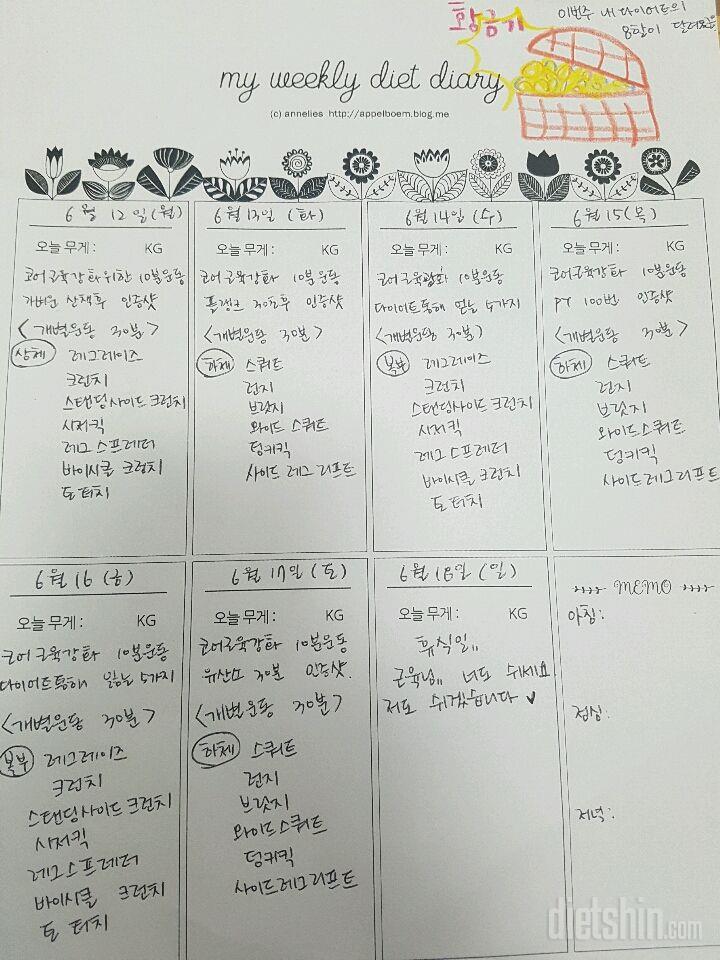 황금기
이번주 내 다이어트의
8할이 달려있음
my weekly diet diary
(c) annelies http://appelboem.blog.me
6월 12일(월)
오늘 무게: KG
코어근육강화위한 10분운동
가벼운 산책후 인증샷
<개별운동 30분>
상체 레그레이즈
크런치
스탠딩사이드크런치
시저킥
레그스프레더
바이시클 크런치
토터치
6월 13일 (화)
오늘 무게: KG
코어근육강화 10분운동
플랭크 30초후 인증샷
<개별운동 30분>
하체 스쿼트
런지
브릿지
와이드스쿼트
덩키킥
사이드레그리프트
6월 14일 (수)
오늘 무게: KG
코어근육강화 10분운동
다이어트통해 얻는 5가지
<개별운동 30분>
복부 레그레이즈
크런치
스탠딩사이드크런치
시저킥
레그스프레더
바이시클 크런치
토터치
6월 15(목)
오늘 무게: KG
코어근육강화 10분운동
PT 100번 인증샷
<개별운동 30분>
하체 스쿼트
런지
브릿지
와이드스쿼트
덩키킥
사이드레그리프트
6월 16 (금)
오늘 무게: KG
코어근육강화 10분운동
다이어트통해 잃는 5가지
<개별운동 30분>
복부 레그레이즈
크런치
스탠딩사이드크런치
시저킥
레그스프레더
바이시클 크런치
토 터치
6월 17일 (토)
오늘 무게: KG
코어근육강화 10분운동
유산소 30분 인증샷.
<개별운동 30분>
하체 스쿼트
런지
브릿지
와이드스쿼트
덩키킥
사이드레그리프트
6월 18일 (일)
오늘 무게: KG
휴식일,,
근육님,, 너도 쉬세요
저도 쉬겠습니다 ♥
MEMO
아침:
점심:
저녁:
dietshin.com